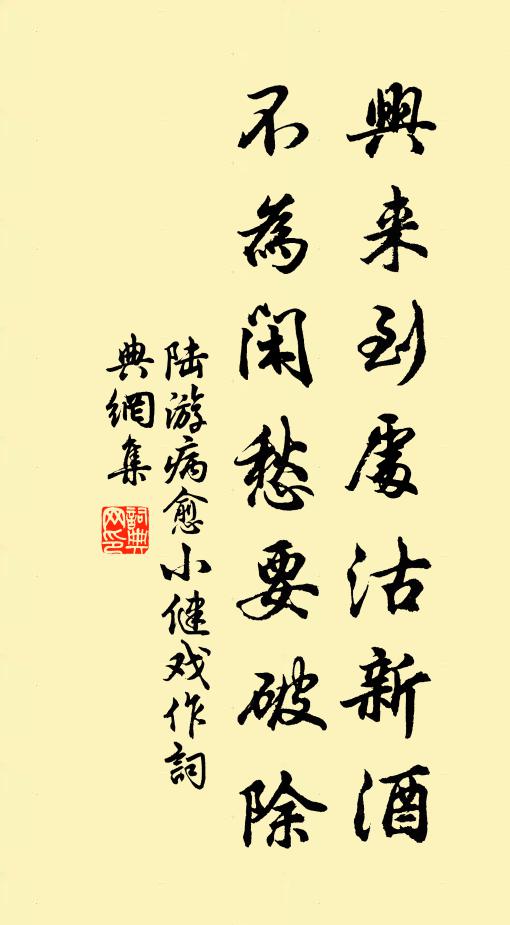 興来到處沽新酒
不為閑愁要破除
陆游病愈小健戏作詞
典網集
詞典网印